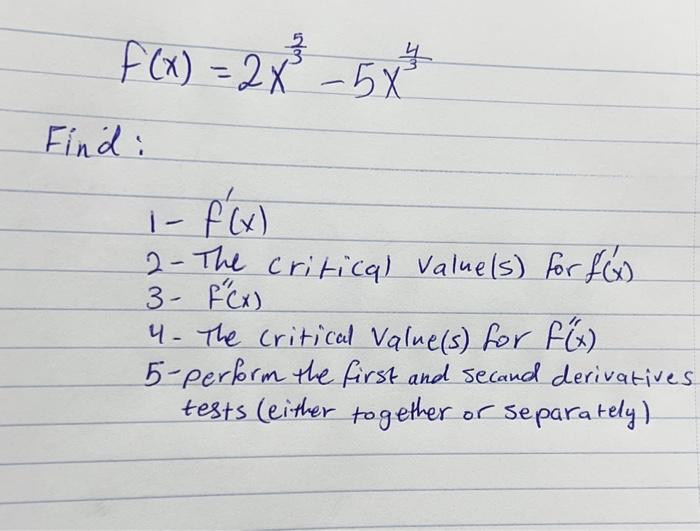 f(x) = 2x^{5/3} - 5x^{4/3}
Find:
1- f'(x)
2- The critical value(s) for f'(x)
3- f"(x)
4- The critical Value(s) for f"(x)
5- perform the first and secand derivatives
tests (either together or separately)